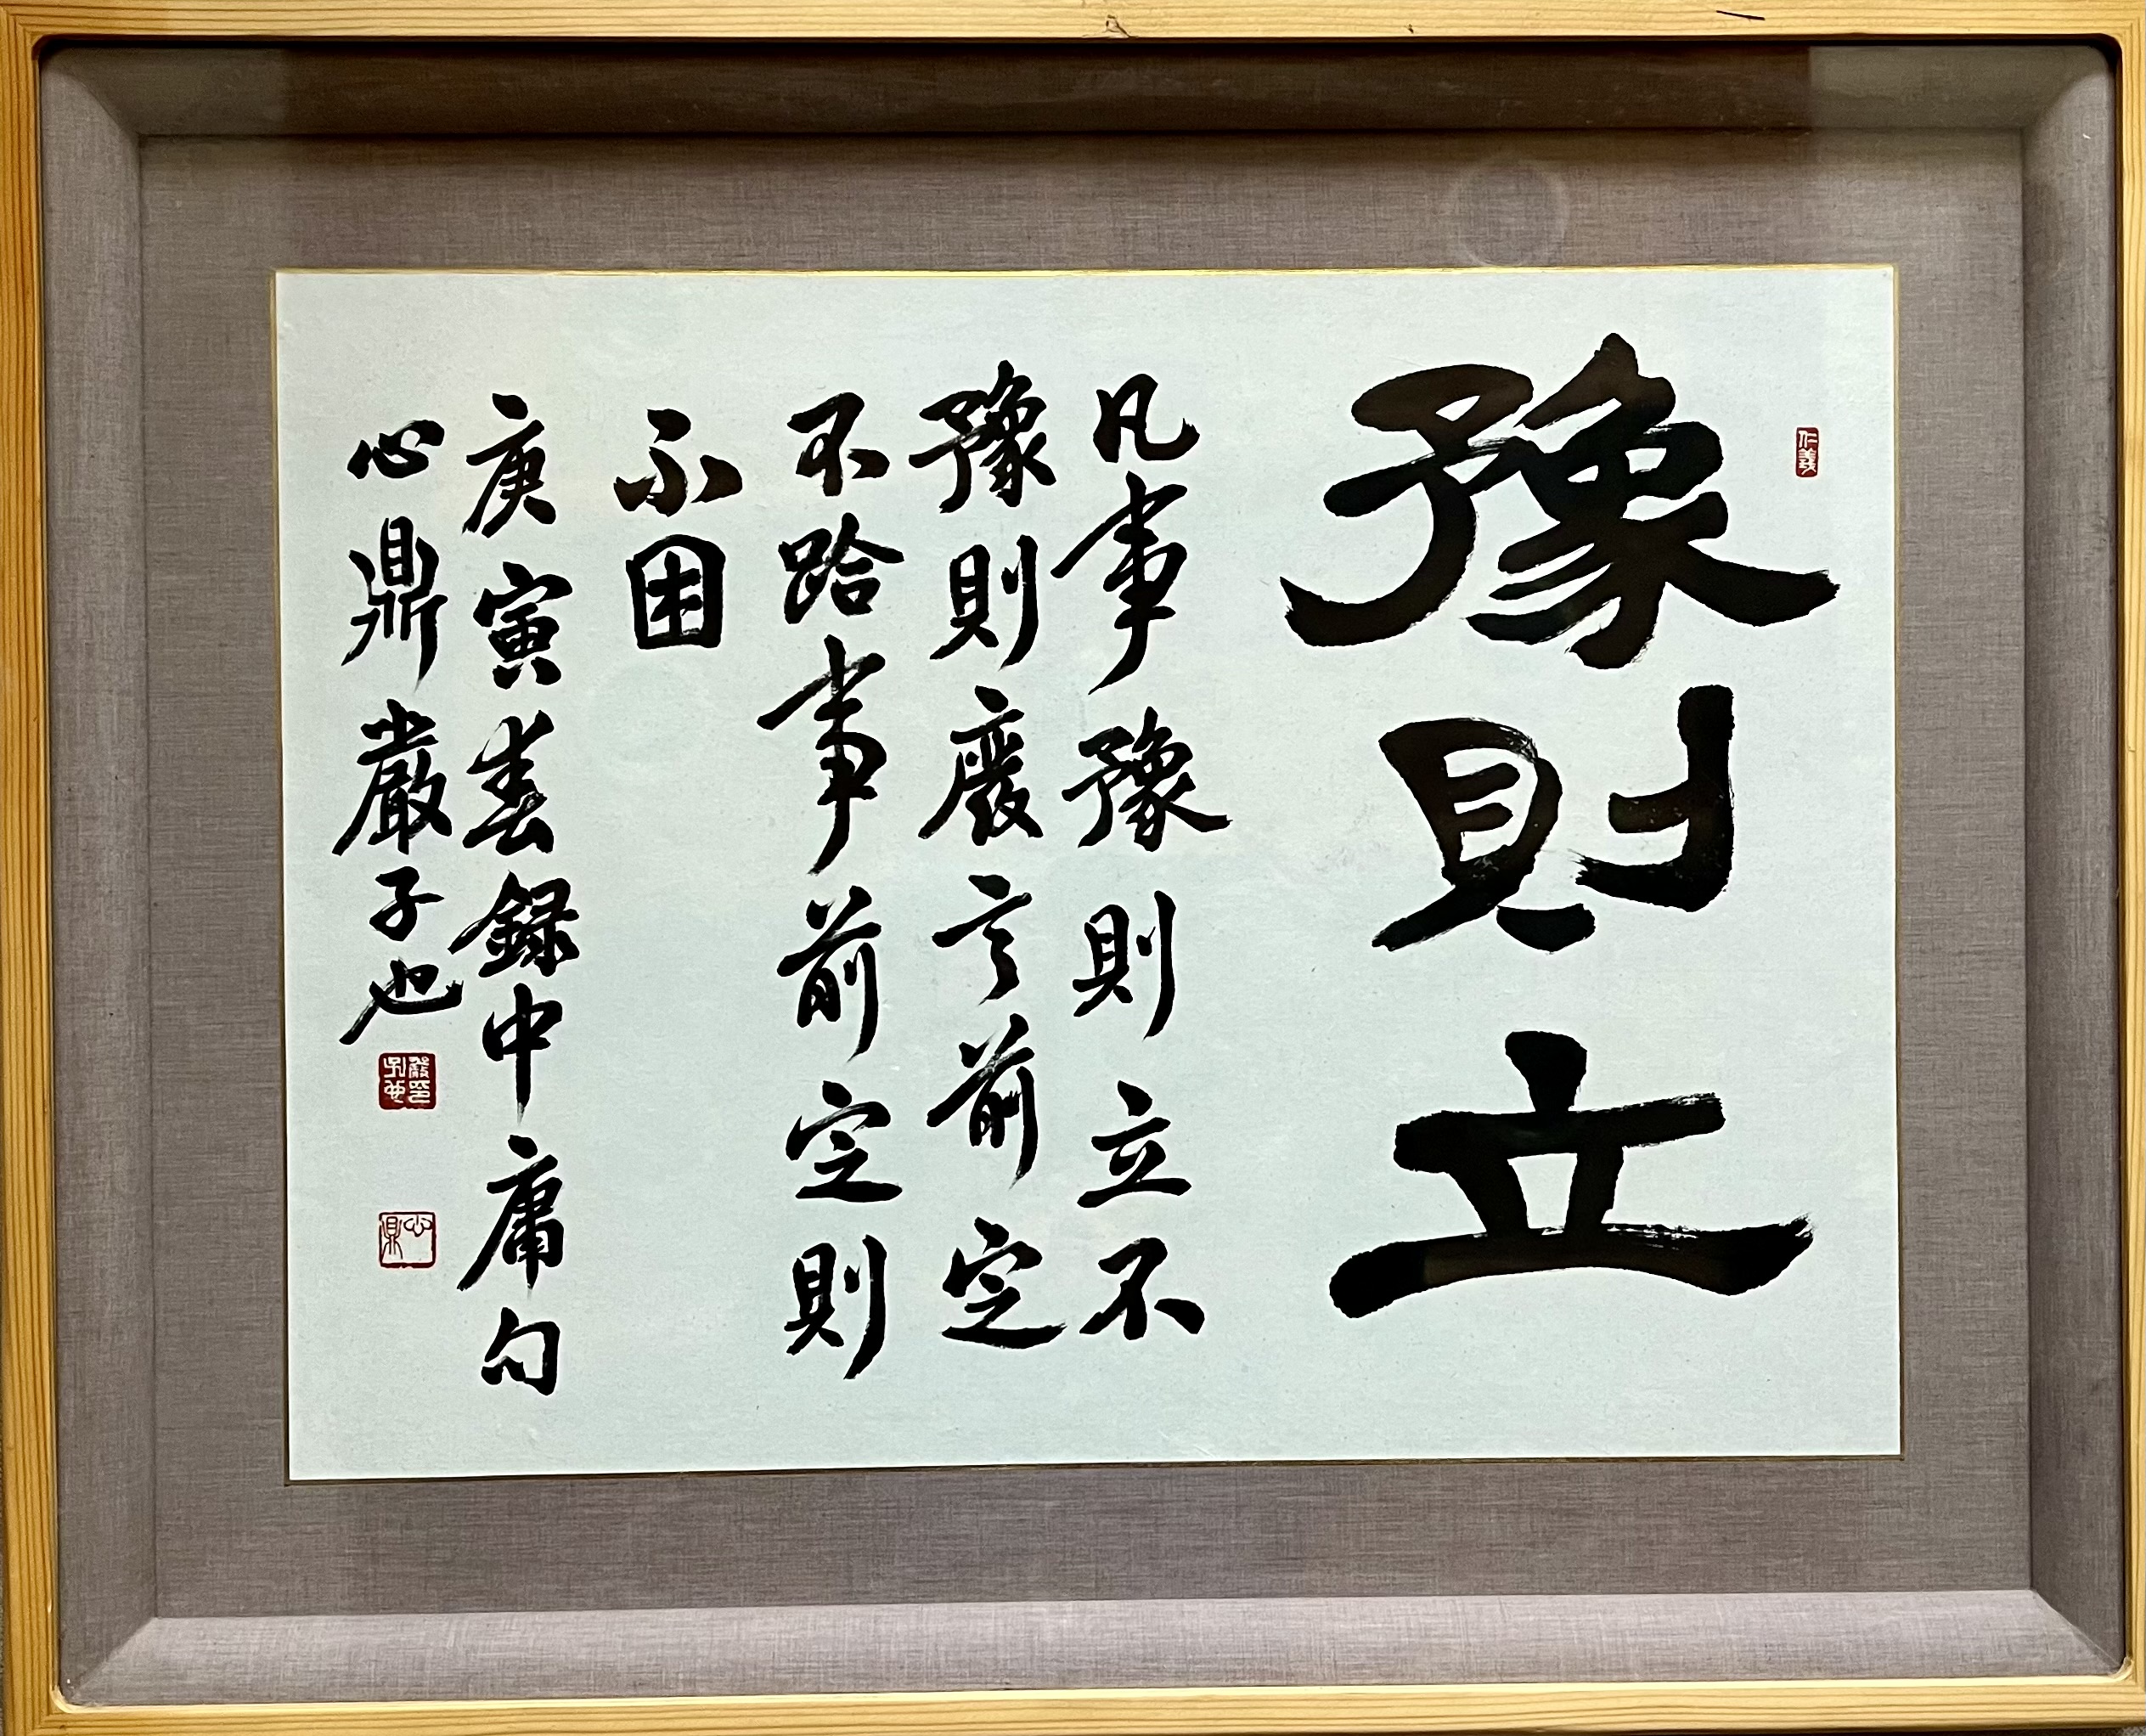 仁義
豫則立
凡事豫則立不
豫則廢言前定
不跲事前定則
不困
庚寅春錄中庸句
心鼎嚴子也
心鼎